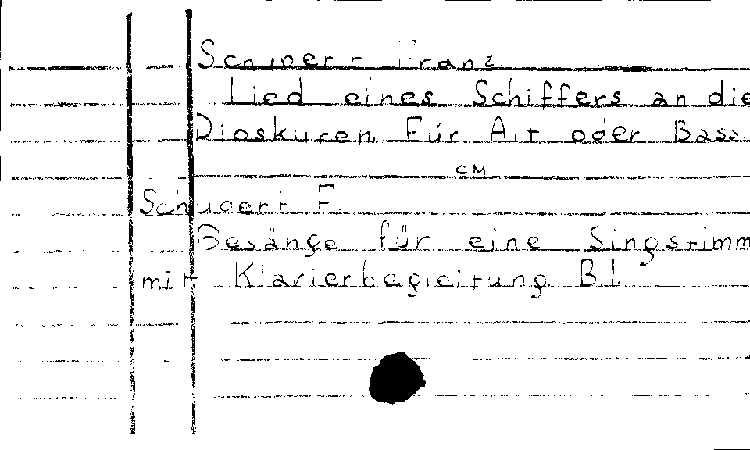 Schubert Franz
Lied eines Schiffers an die
Dioskuren Für Alt oder Bass
CM
Schubert F.
Gesänge für eine Singstimm
mit Klavierbegleitung Bd